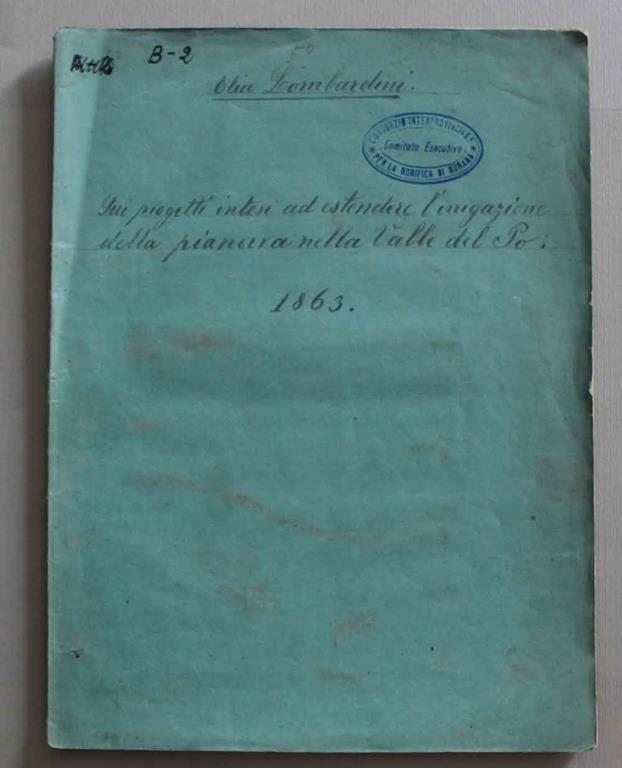 B-2
5°
Elia Lombardini.
CONSORZIO INTERPROVINCIALE
Comitato Esecutivo
PER LA BONIFICA DI BURANA
Sui progetti intesi ad estendere l'irrigazione
della pianura nella Valle del Po.
1863.